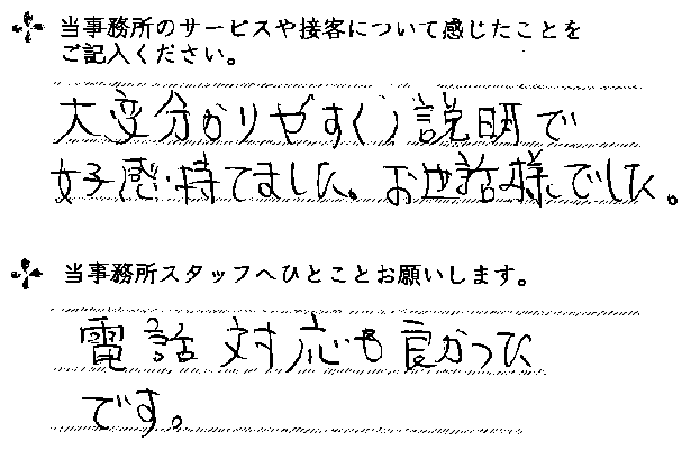 当事務所のサービスや接客について感じたことを
ご記入ください。
大変分かりやすく、説明で
好感・持てました。お世話様でした。
当事務所スタッフへひとことお願いします。
電話対応も良かった
です。